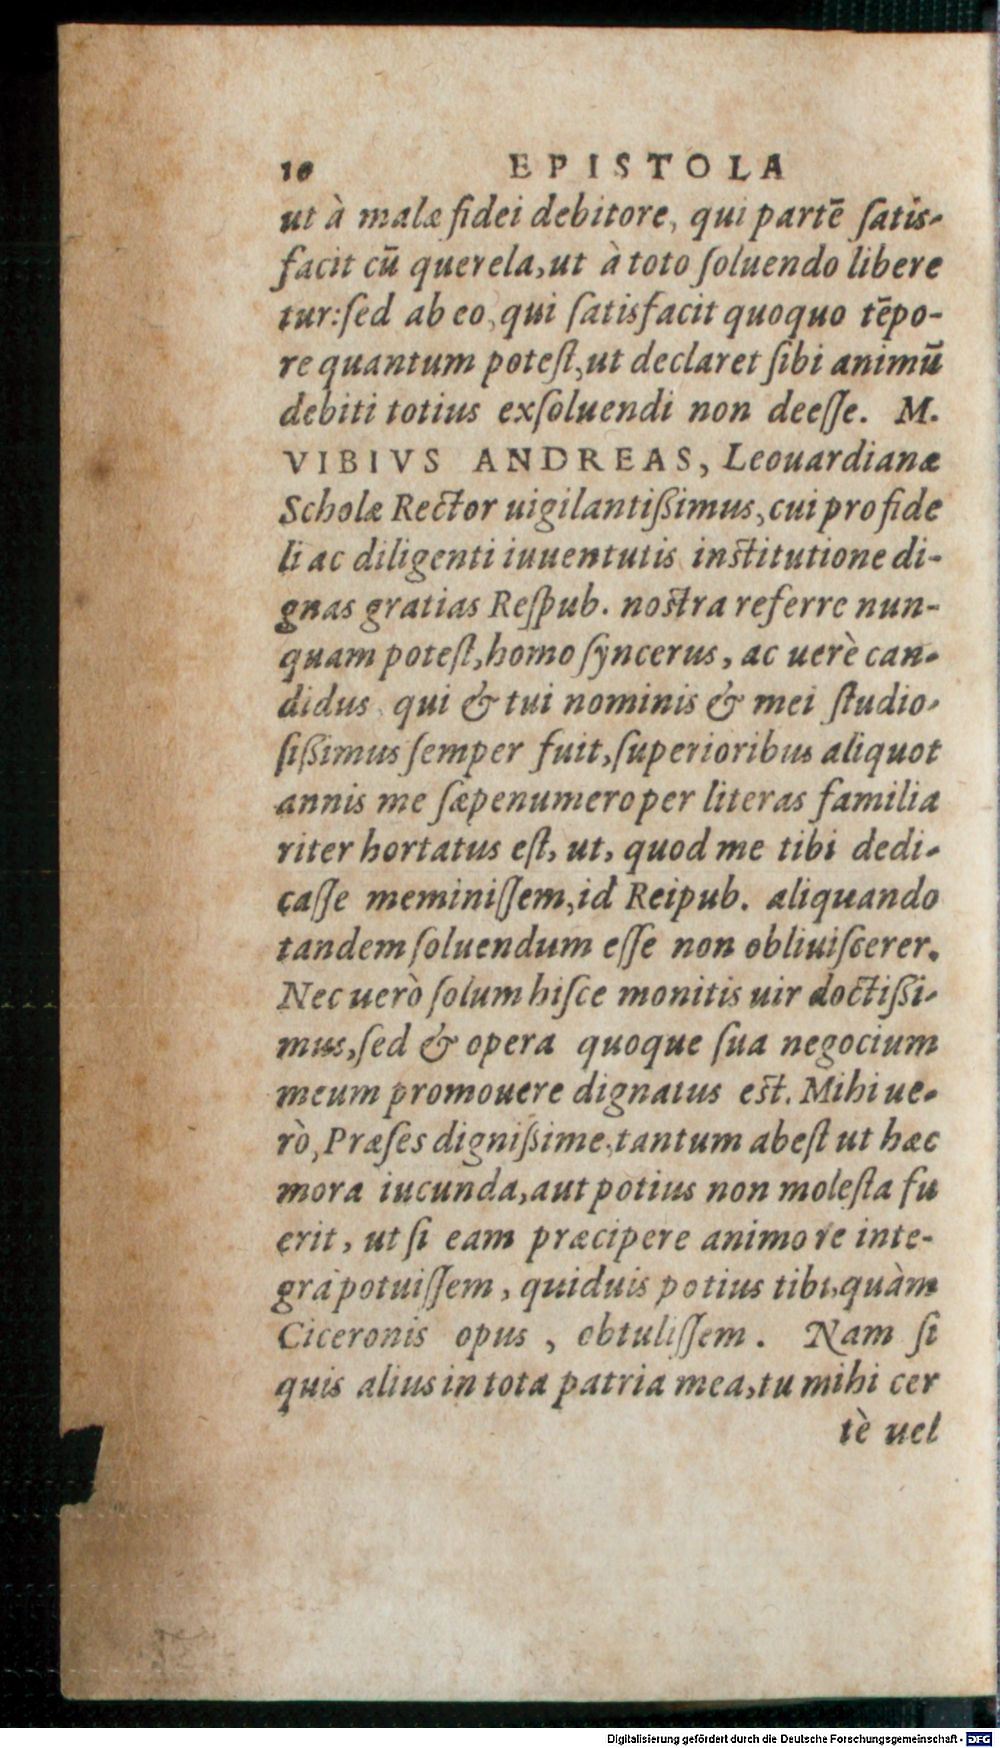 10 EPISTOLA
ut à malæ fidei debitore, qui partē ſatis-
facit cū querela, ut à toto ſoluendo libere
tur: ſed ab eo, qui ſatisfacit quoquo tēpo-
re quantum poteſt, ut declaret ſibi animū
debiti totius exſoluendi non deeſſe. M.
VIBIVS ANDREAS, Leouardianæ
Scholæ Rector uigilantißimus, cui pro fide
li ac diligenti iuuentutis inſtitutione di-
gnas gratias Reſpub. noſtra referre nun-
quam poteſt, homo ſyncerus, ac uerè can-
didus qui & tui nominis & mei ſtudio-
ſißimus ſemper fuit, ſuperioribus aliquot
annis me ſæpenumero per literas familia
riter hortatus eſt, ut, quod me tibi dedi-
caſſe meminiſſem, id Reipub. aliquando
tandem ſoluendum eſſe non obliuiſcerer.
Nec uerò ſolum hiſce monitis uir doctißi-
mus, ſed & opera quoque ſua negocium
meum promouere dignatus eſt. Mihi ue-
rò, Præſes dignißime, tantum abeſt ut hæc
mora iucunda, aut potius non moleſta fu
erit, ut ſi eam præcipere animo re inte-
gra potuiſſem, quiduis potius tibi, quàm
Ciceronis opus, obtuliſſem. Nam ſi
quis alius in tota patria mea, tu mihi cer
tè uel
Digitalisierung gefördert durch die Deutsche Forschungsgemeinschaft - DFG